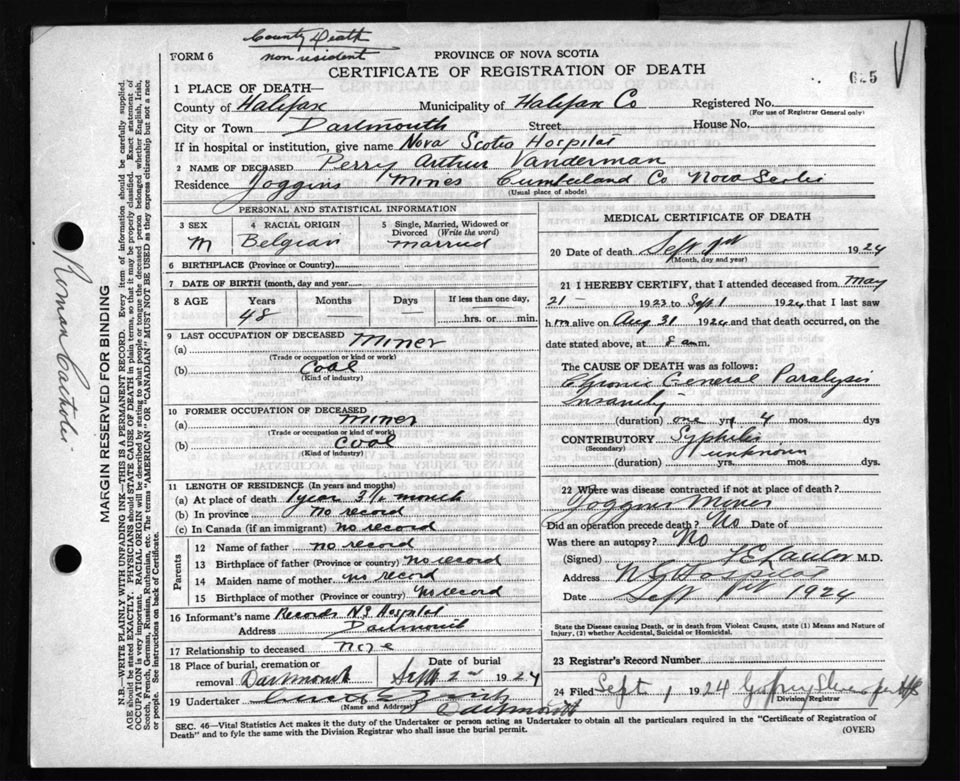 County Death
non resident
FORM 6
PROVINCE OF NOVA SCOTIA
CERTIFICATE OF REGISTRATION OF DEATH
625
1 PLACE OF DEATH—
County of Halifax Municipality of Halifax Co Registered No.
(For use of Registrar General only)
City or Town Dartmouth Street House No.
If in hospital or institution, give name Nova Scotia Hospital
2 NAME OF DECEASED Perry Arthur Vanderman
Residence Joggins Mines Cumberland Co. Nova Scotia
(Usual place of abode)
PERSONAL AND STATISTICAL INFORMATION
3 SEX 4 RACIAL ORIGIN 5 Single, Married, Widowed or Divorced (Write the word)
M Belgian married
6 BIRTHPLACE (Province or Country)
7 DATE OF BIRTH (month, day and year)
8 AGE Years Months Days If less than one day,
48 — — hrs. or min.
9 LAST OCCUPATION OF DECEASED
(a) Miner
(Trade or occupation or kind or work)
(b) Coal
(Kind of industry)
10 FORMER OCCUPATION OF DECEASED
(a) miner
(Trade or occupation or kind of work)
(b) coal
(Kind of industry)
11 LENGTH OF RESIDENCE (In years and months)
(a) At place of death 1 year 3 ½ month
(b) In province no record
(c) In Canada (if an immigrant) no record
Parents
12 Name of father no record
13 Birthplace of father (Province or country) no record
14 Maiden name of mother no record
15 Birthplace of mother (Province or country) no record
16 Informant's name Records N.S Hospital
Address Dartmouth
17 Relationship to deceased none
18 Place of burial, cremation or removal Dartmouth Date of burial Sept 2nd 1924
19 Undertaker
(Name and Address) Dartmouth
MEDICAL CERTIFICATE OF DEATH
20 Date of death Sept 1st 1924
(Month, day and year)
21 I HEREBY CERTIFY, that I attended deceased from May
21 — 1923 to Sept 1 1924, that I last saw
him alive on Aug 31 1924 and that death occurred, on
date stated above, at 8 a m.
The CAUSE OF DEATH was as follows:
Chronic General Paralysis
Insanity
(duration) one yrs. 4 mos. dys
CONTRIBUTORY Syphilis
(Secondary) unknown
(duration) yrs. mos. dys.
22 Where was disease contracted if not at place of death?
Joggins Mines
Did an operation precede death? No Date of
Was there an autopsy? No
(Signed) F E Lawlor M.D.
Address N S Hospital
Date Sept 1st 1924
State the Disease causing Death, or in death from Violent Causes, state (1) Means and Nature of
Injury, (2) whether Accidental, Suicidal or Homicidal.
23 Registrar's Record Number
24 Filed Sept 1 1924
Division Registrar
SEC. 46—Vital Statistics Act makes it the duty of the Undertaker or person acting as Undertaker to obtain all the particulars required in the "Certificate of Registration of
Death" and to fyle the same with the Division Registrar who shall issue the burial permit. (OVER)
Roman Catholic
MARGIN RESERVED FOR BINDING
N.B.—WRITE PLAINLY WITH UNFADING INK—THIS IS A PERMANENT RECORD. Every item of information should be carefully supplied.
AGE should be stated EXACTLY. PHYSICIANS should STATE CAUSE OF DEATH in plain terms, so that it may be properly classified. Exact statement of
OCCUPATION is very important. RACIAL ORIGIN will be described by stating to what people or tongue the deceased person belonged whether English, Irish,
Scotch, French, German, Russian, Ruthenian, etc. The terms "AMERICAN" OR "CANADIAN" MUST NOT BE USED as they express citizenship but not a race
or people. See instructions on back of Certificate.